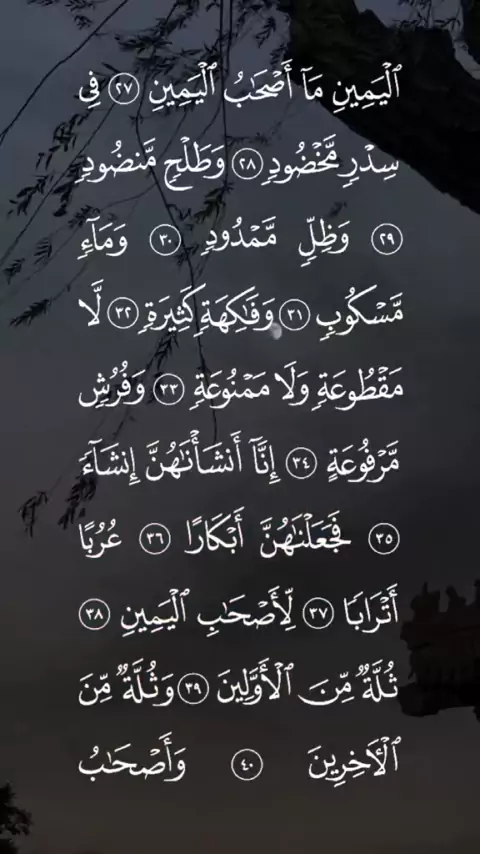 ٱلۡيَمِينِ مَآ أَصۡحَٰبُ ٱلۡيَمِينِ ٢٧ فِي
سِدۡرٖ مَّخۡضُودٖ ٢٨ وَطَلۡحٖ مَّنضُودٖ
٢٩ وَظِلّٖ مَّمۡدُودٖ ٣٠ وَمَآءٖ
مَّسۡكُوبٖ ٣١ وَفَٰكِهَةٖ كَثِيرَةٖ ٣٢ لَّا
مَقۡطُوعَةٖ وَلَا مَمۡنُوعَةٖ ٣٣ وَفُرُشٖ
مَّرۡفُوعَةٍ ٣٤ إِنَّآ أَنشَأۡنَٰهُنَّ إِنشَآءٗ
٣٥ فَجَعَلۡنَٰهُنَّ أَبۡكَارًا ٣٦ عُرُبًا
أَتۡرَابٗا ٣٧ لِّأَصۡحَٰبِ ٱلۡيَمِينِ ٣٨
ثُلَّةٞ مِّنَ ٱلۡأَوَّلِينَ ٣٩ وَثُلَّةٞ مِّنَ
ٱلۡأٓخِرِينَ ٤٠ وَأَصۡحَٰبُ